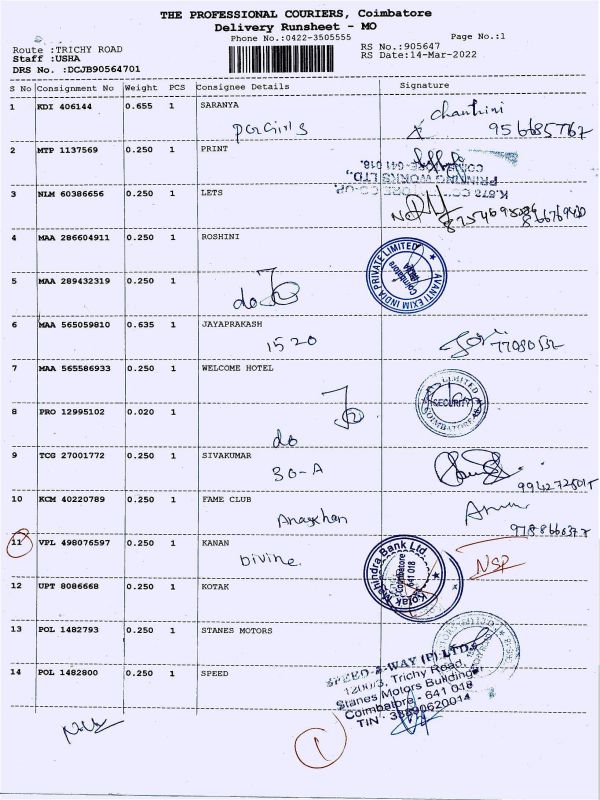 THE PROFESSIONAL COURIERS, Coimbatore
Delivery Runsheet - MO
Phone No.:0422-3505555
Page No.:1
Route :TRICHY ROAD
RS No.:905647
Staff :USHA
RS Date:14-Mar-2022
DRS No. :DCJB90564701
S No Consignment No Weight PCS Consignee Details Signature
1 KDI 406144 0.655 1 SARANYA
2 MTP 1137569 0.250 1 PRINT
PRINTING WORKS LTD.,
3 NLM 60386656 0.250 1 LETS
4 MAA 286604911 0.250 1 ROSHINI
AVANTI EXIM INDIA PRIVATE LIMITED
Coimbatore
5 MAA 289432319 0.250 1
do
6 MAA 565059810 0.635 1 JAYAPRAKASH
1520
7 MAA 565586933 0.250 1 WELCOME HOTEL
LIMITED
SECURITY
COIMBATORE
8 PRO 12995102 0.020 1
do
9 TCG 27001772 0.250 1 SIVAKUMAR
30-A
10 KCM 40220789 0.250 1 FAME CLUB
11 VPL 498076597 0.250 1 KANAN
Divine
NSP
Kotak Mahindra Bank Ltd
Coimbatore
641 018
12 UPT 8086668 0.250 1 KOTAK
13 POL 1482793 0.250 1 STANES MOTORS
14 POL 1482800 0.250 1 SPEED
SPEED-A-WAY (P) LTD.
1200/3, Trichy Road,
Stanes Motors Building
Coimbatore - 641 018
1